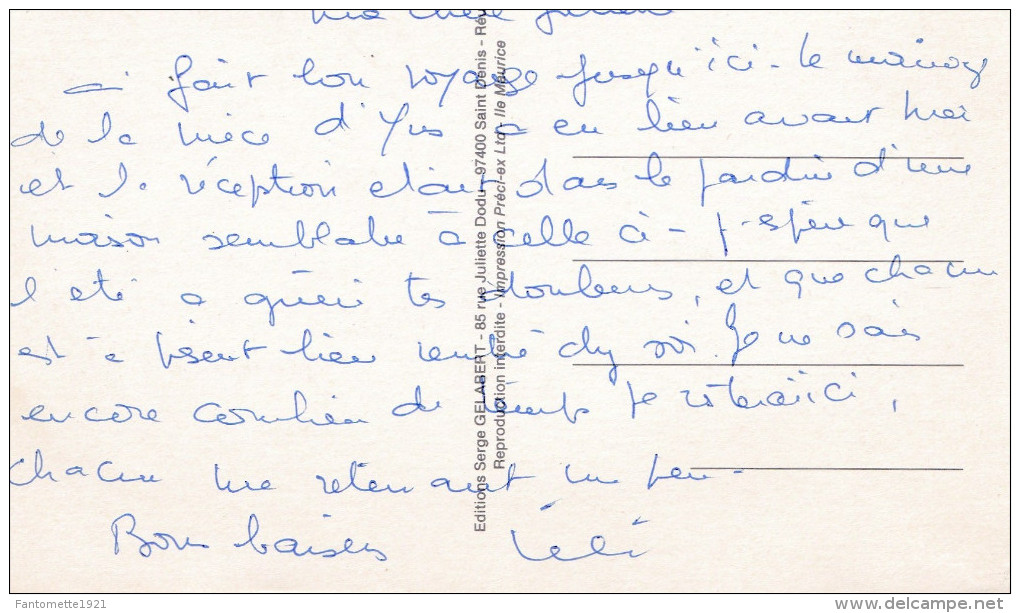 ma chère
ai fait bon voyage jusqu'ici - le mariage
de la nièce d'Yves a eu lieu avant hier
et la réception était dans le jardin d'une
maison semblable à celle ci - j'espère que
l'été a guéri tes douleurs, et que chacun
est à présent bien rentré chez soi. Je ne sais
encore combien de temps je resterai ici,
chacun me retenant un peu -
Bons baisers
Editions Serge GÉLABERT - 85 rue Juliette Dodu - 97400 Saint Denis - Ré
Reproduction interdite - Impression Préci-ex Ltd - Ile Maurice
Fantomette1921
delcampe.net